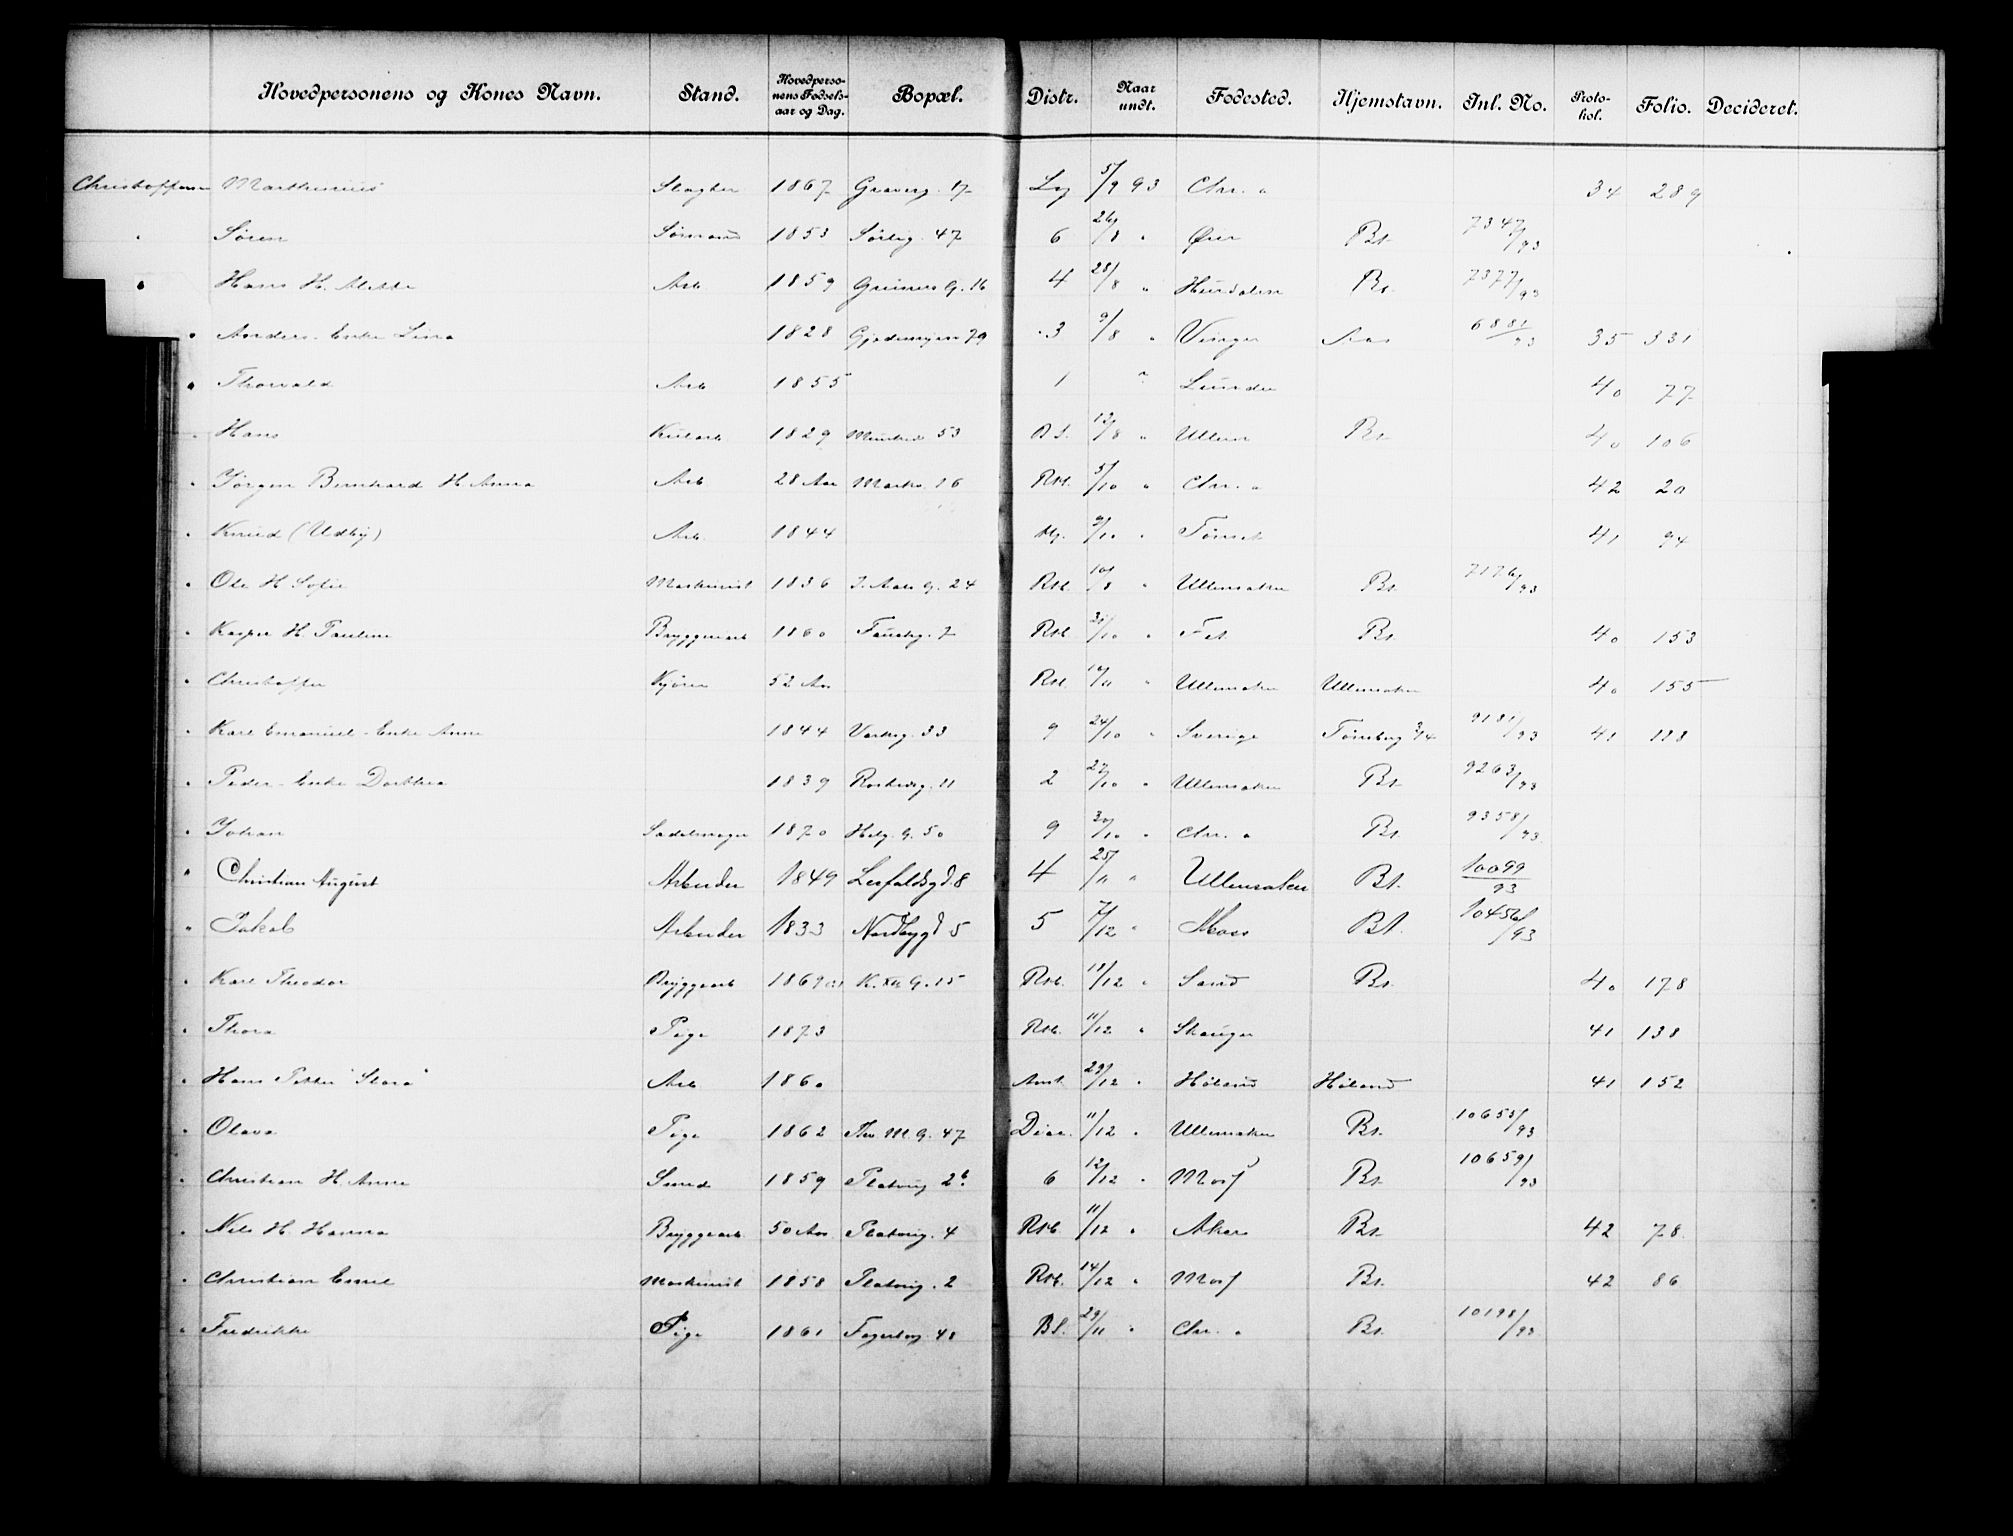 Hovedpersonens og Kones Navn. Stand. Hovedpersonens Fødselsaar og Dag. Bopæl. Distr. Naar undt. Fødested. Hjemstavn. Inl. No. Protokol. Folio. Decideret.
Christoffersen Marthinius Slagter 1867 Graverg. 17 5/9 93 Chr. a 34 289
" Søren Sømand 1853 47 6 26/8 " Bt. 7347/93
" Hans H. Alette Arb 1859 Grüners G. 16 4 28/8 " Hurdalen Bt. 7377/93
" Anders - Enke Lina 1828 79 3 9/8 " Vinger 6881/93 35 331
" Thorvald Arb 1855 1 " Lunder 40 77
" Hans 1829 53 12/8 " Bt. 40 106
" Jørgen Bernhard H. Anna Arb 28 Aar Markv. 16 Rst. 5/10 " Chr. a 42 20
" Knud (Udby) Arb. 1844 9/10 " Tønset 41 94
" Ole H Sofie Maskinist 1836 J. Aals G. 24 Rst. 10/8 " Ullensaker Bt. 7176/93
" Kasper H. Pauline Bryggearb 1860 7 Rst. 31/10 " Fet Bt. 40 153
" Christoffer Kjører 52 Aar Rst. 16/11 " Ullensaker Ullensaker 40 155
" Karl Emanuel - Enke Anne 1844 33 9 24/10 " Sverige Tønsberg 9181/93 41 118
" Peder - Enke Dorthea 1839 11 2 27/10 " Ullensaker Bt. 9263/93
" Johan Sadelmager 1870 Helg. G. 50 9 30/10 " Chr. a Bt. 9358/93
" Christian August Arbeider 1849 8 4 25/11 " Ullensaker Bt. 10099/93
" Jakob Arbeider 1833 Nordbygd 5 5 7/12 " Moss Bt. 10456/93
" Karl Theodor Bryggearb 1869 K. XII G. 15 Rst. 18/12 " Sand Bt. 40 178
" Thora Pige 1873 Rst. 11/12 " Skauger 41 138
" Hans Petter "Stora" Arb 1860 Amt. 29/12 " Høland Høland 41 152
" Olava Pige 1862 Thv. M. G. 47 11/12 " Ullensaker Bt. 10653/93
" Christian H. Anne Smed 1859 Platoug. 2b 6 12/12 " Moss Bt. 10659/93
" Nils H. Hanna Bryggearb. 50 Aar Platoug. 4 Rst. 11/12 " Aker Bt. 42 78
" Christian Emil Maskinist 1858 Platoug. 2 Rst. 14/12 " Moss Bt. 42 86
" Fredrikke Pige 1861 Fagerborg. 48 29/11 " Chr. a Bt. 10198/93